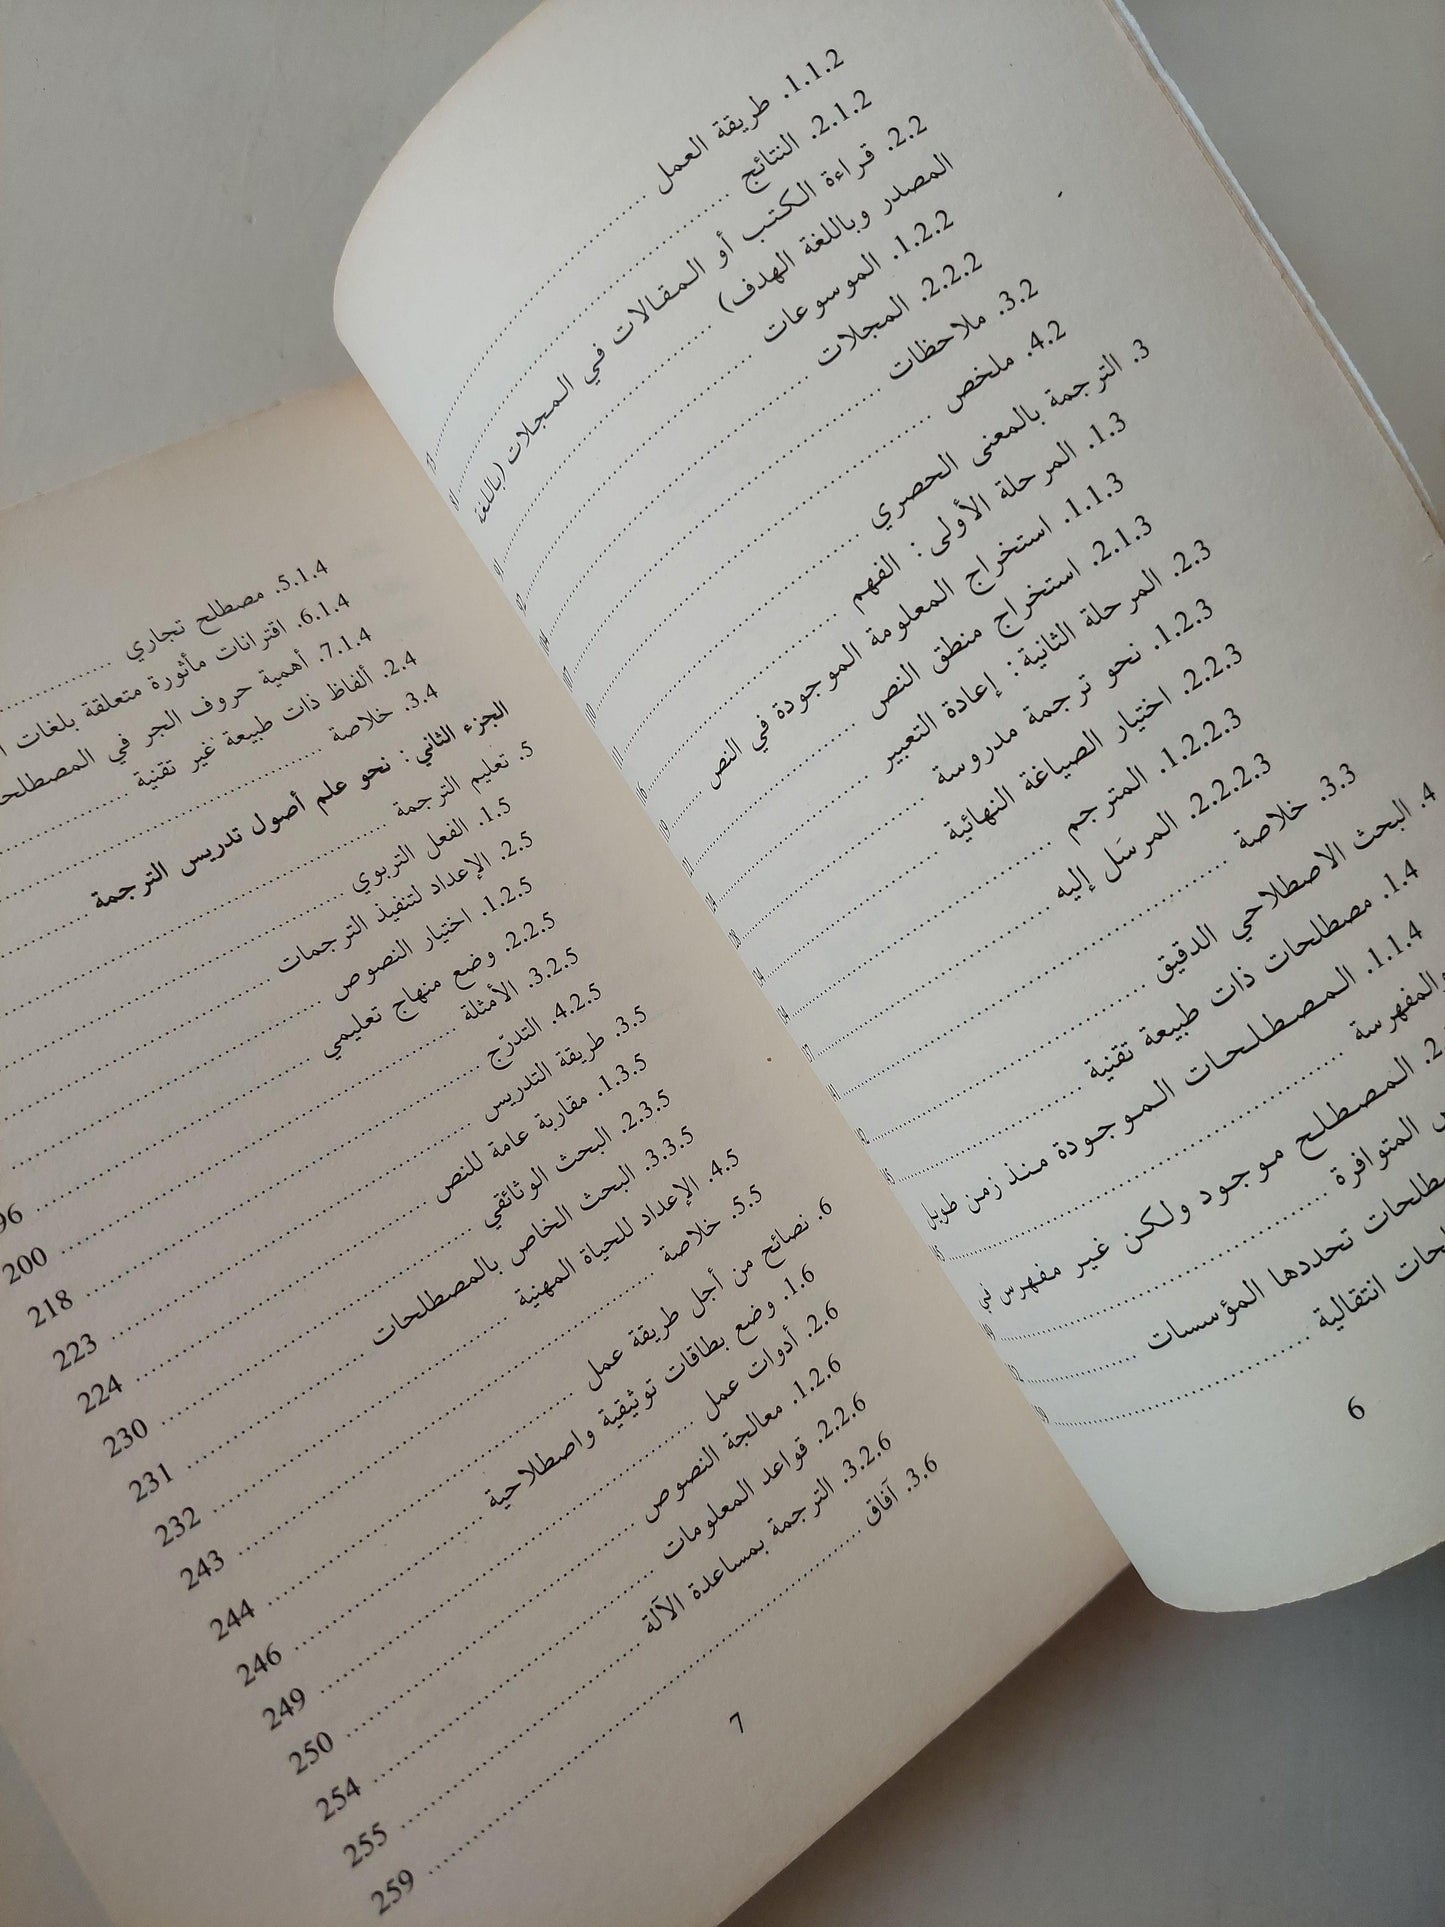 1.1.2. طريقة العمل
2.1.2. النتائج
2.2. قراءة الكتب أو المقالات في المجلات (باللغة
المصدر وباللغة الهدف)
1.2.2. الموسوعات
2.2.2. المجلات
3.2. ملاحظات
4.2. ملخص
3. الترجمة بالمعنى الحصري
1.3. المرحلة الأولى: الفهم
1.1.3. استخراج المعلومة الموجودة في النص
2.1.3. استخراج منطق النص
2.3. المرحلة الثانية: إعادة التعبير
1.2.3. نحو ترجمة مدروسة
2.2.3. اختيار الصياغة النهائية
1.2.2.3. المترجم
2.2.2.3. المرسَل إليه
3.3. خلاصة
4. البحث الاصطلاحي الدقيق
1.4. مصطلحات ذات طبيعة تقنية
1.1.4. المصطلحات الموجودة منذ زمن طويل
والمفهرسة
المصطلح موجود ولكن غير مفهرس في
المتوافرة
تحددها المؤسسات
انتقالية
6
5.1.4. مصطلح تجاري
6.1.4. اقترانات مأثورة متعلقة بلغات
7.1.4. أهمية حروف الجر في
2.4. ألفاظ ذات طبيعة غير تقنية
3.4. خلاصة
الجزء الثاني: نحو علم أصول تدريس الترجمة
5. تعليم الترجمة
1.5. الفعل التربوي
2.5. الإعداد لتنفيذ الترجمات
1.2.5. اختيار النصوص
2.2.5. وضع منهاج تعليمي
3.2.5. الأمثلة
4.2.5. التدرّج
3.5. طريقة التدريس ... 200
1.3.5. مقاربة عامة للنص ... 218
2.3.5. البحث الوثائقي ... 223
3.3.5. البحث الخاص بالمصطلحات ... 224
4.5. الإعداد للحياة المهنية ... 230
5.5. خلاصة ... 231
6. نصائح من أجل طريقة عمل ... 232
1.6. وضع بطاقات توثيقية واصطلاحية ... 243
2.6. أدوات عمل ... 244
1.2.6. معالجة النصوص ... 246
2.2.6. قواعد المعلومات ... 249
3.2.6. الترجمة بمساعدة الآلة ... 250
3.6. آفاق ... 254
255
259
7